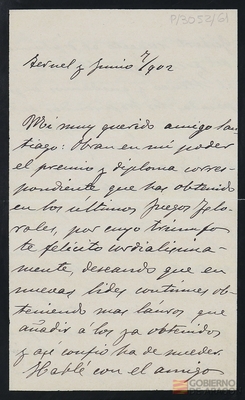 P/3052/61
Teruel y Junio 7/902
Mi muy querido amigo San-
tiago: Obran en mi poder
el premio y diploma corres-
pondiente que has obtenido
en los últimos Juegos Flo-
rales, por cuyo triunfo
te felicito cordialisima-
mente, deseando que en
nuevas lides continues ob-
teniendo mas lauros, que
añadir á los ya obtenidos
y así confio ha de suceder.
Hablé con el amigo
GOBIERNO
DE ARAGON